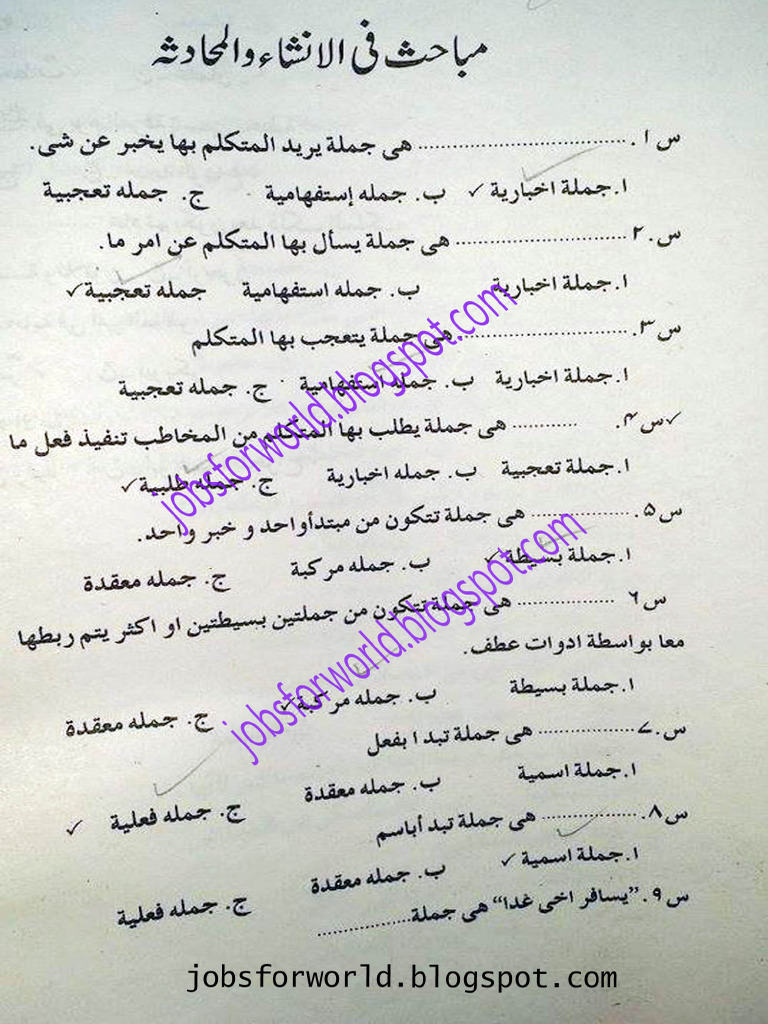 مباحث فى الانشاء والمحادثه
س ۱. .................................... هى جملة يريد المتكلم بها يخبر عن شى.
ا. جملة اخبارية ✓ ب. جمله إستفهامية ج. جمله تعجبية
س ۲. .............................. هى جملة يسأل بها المتكلم عن امر ما.
ا. جملة اخبارية ب. جمله استفهامية جمله تعجبية ✓
س ۳. .............................. هى جملة يتعجب بها المتكلم
ا. جملة اخبارية ب. جمله استفهامية ج. جمله تعجبية
✓ س ۴. ............ هى جملة يطلب بها المتكلم من المخاطب تنفيذ فعل ما
ا. جملة تعجبية ب. جمله اخبارية ج. جمله طلبية ✓
س ۵. ................. هى جملة تتكون من مبتدأواحد و خبر واحد.
ا. جملة بسيطة ✓ ب. جمله مركبة ج. جمله معقدة
س ۶ ................. هى جملة تتكون من جملتين بسيطتين او اكثر يتم ربطها
معا بواسطة ادوات عطف.
ا. جملة بسيطة ب. جمله مركبة ✓ ج. جمله معقدة
س ۷. ................. هى جملة تبد ا بفعل
ا. جملة اسمية ب. جمله معقدة ج. جمله فعلية ✓
س ۸. ................. هى جملة تبد أباسم
ا. جملة اسمية ✓ ب. جمله معقدة ج. جمله فعلية
س ۹. "يسافر اخى غدا" هى جملة.................
jobsforworld.blogspot.com
jobsforworld.blogspot.com
jobsforworld.blogspot.com